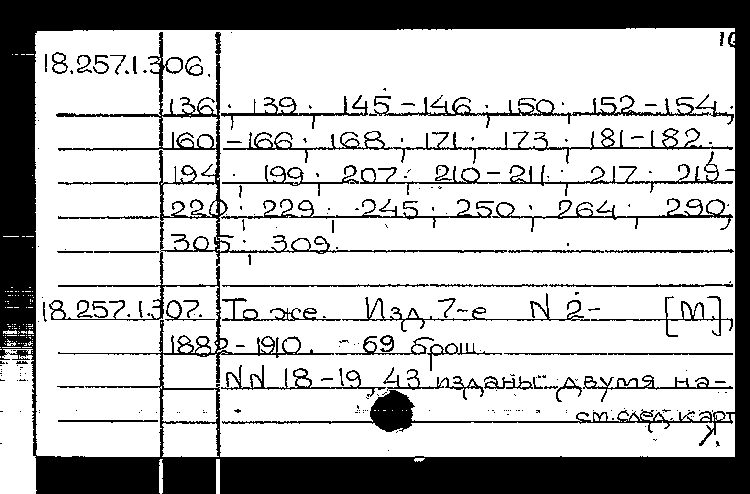 18.257.1.306.
136; 139; 145-146; 150; 152-154;
160-166; 168; 171; 173; 181-182;
194; 199; 207; 210-211; 217; 219-
220; 229; 245; 250; 264; 290;
305; 309.
18.257.1.307. То же. Изд. 7-е N 2- [М.],
1882-1910. - 69 брош.
NN 18-19, 43 изданы двумя на-
см. след. карт